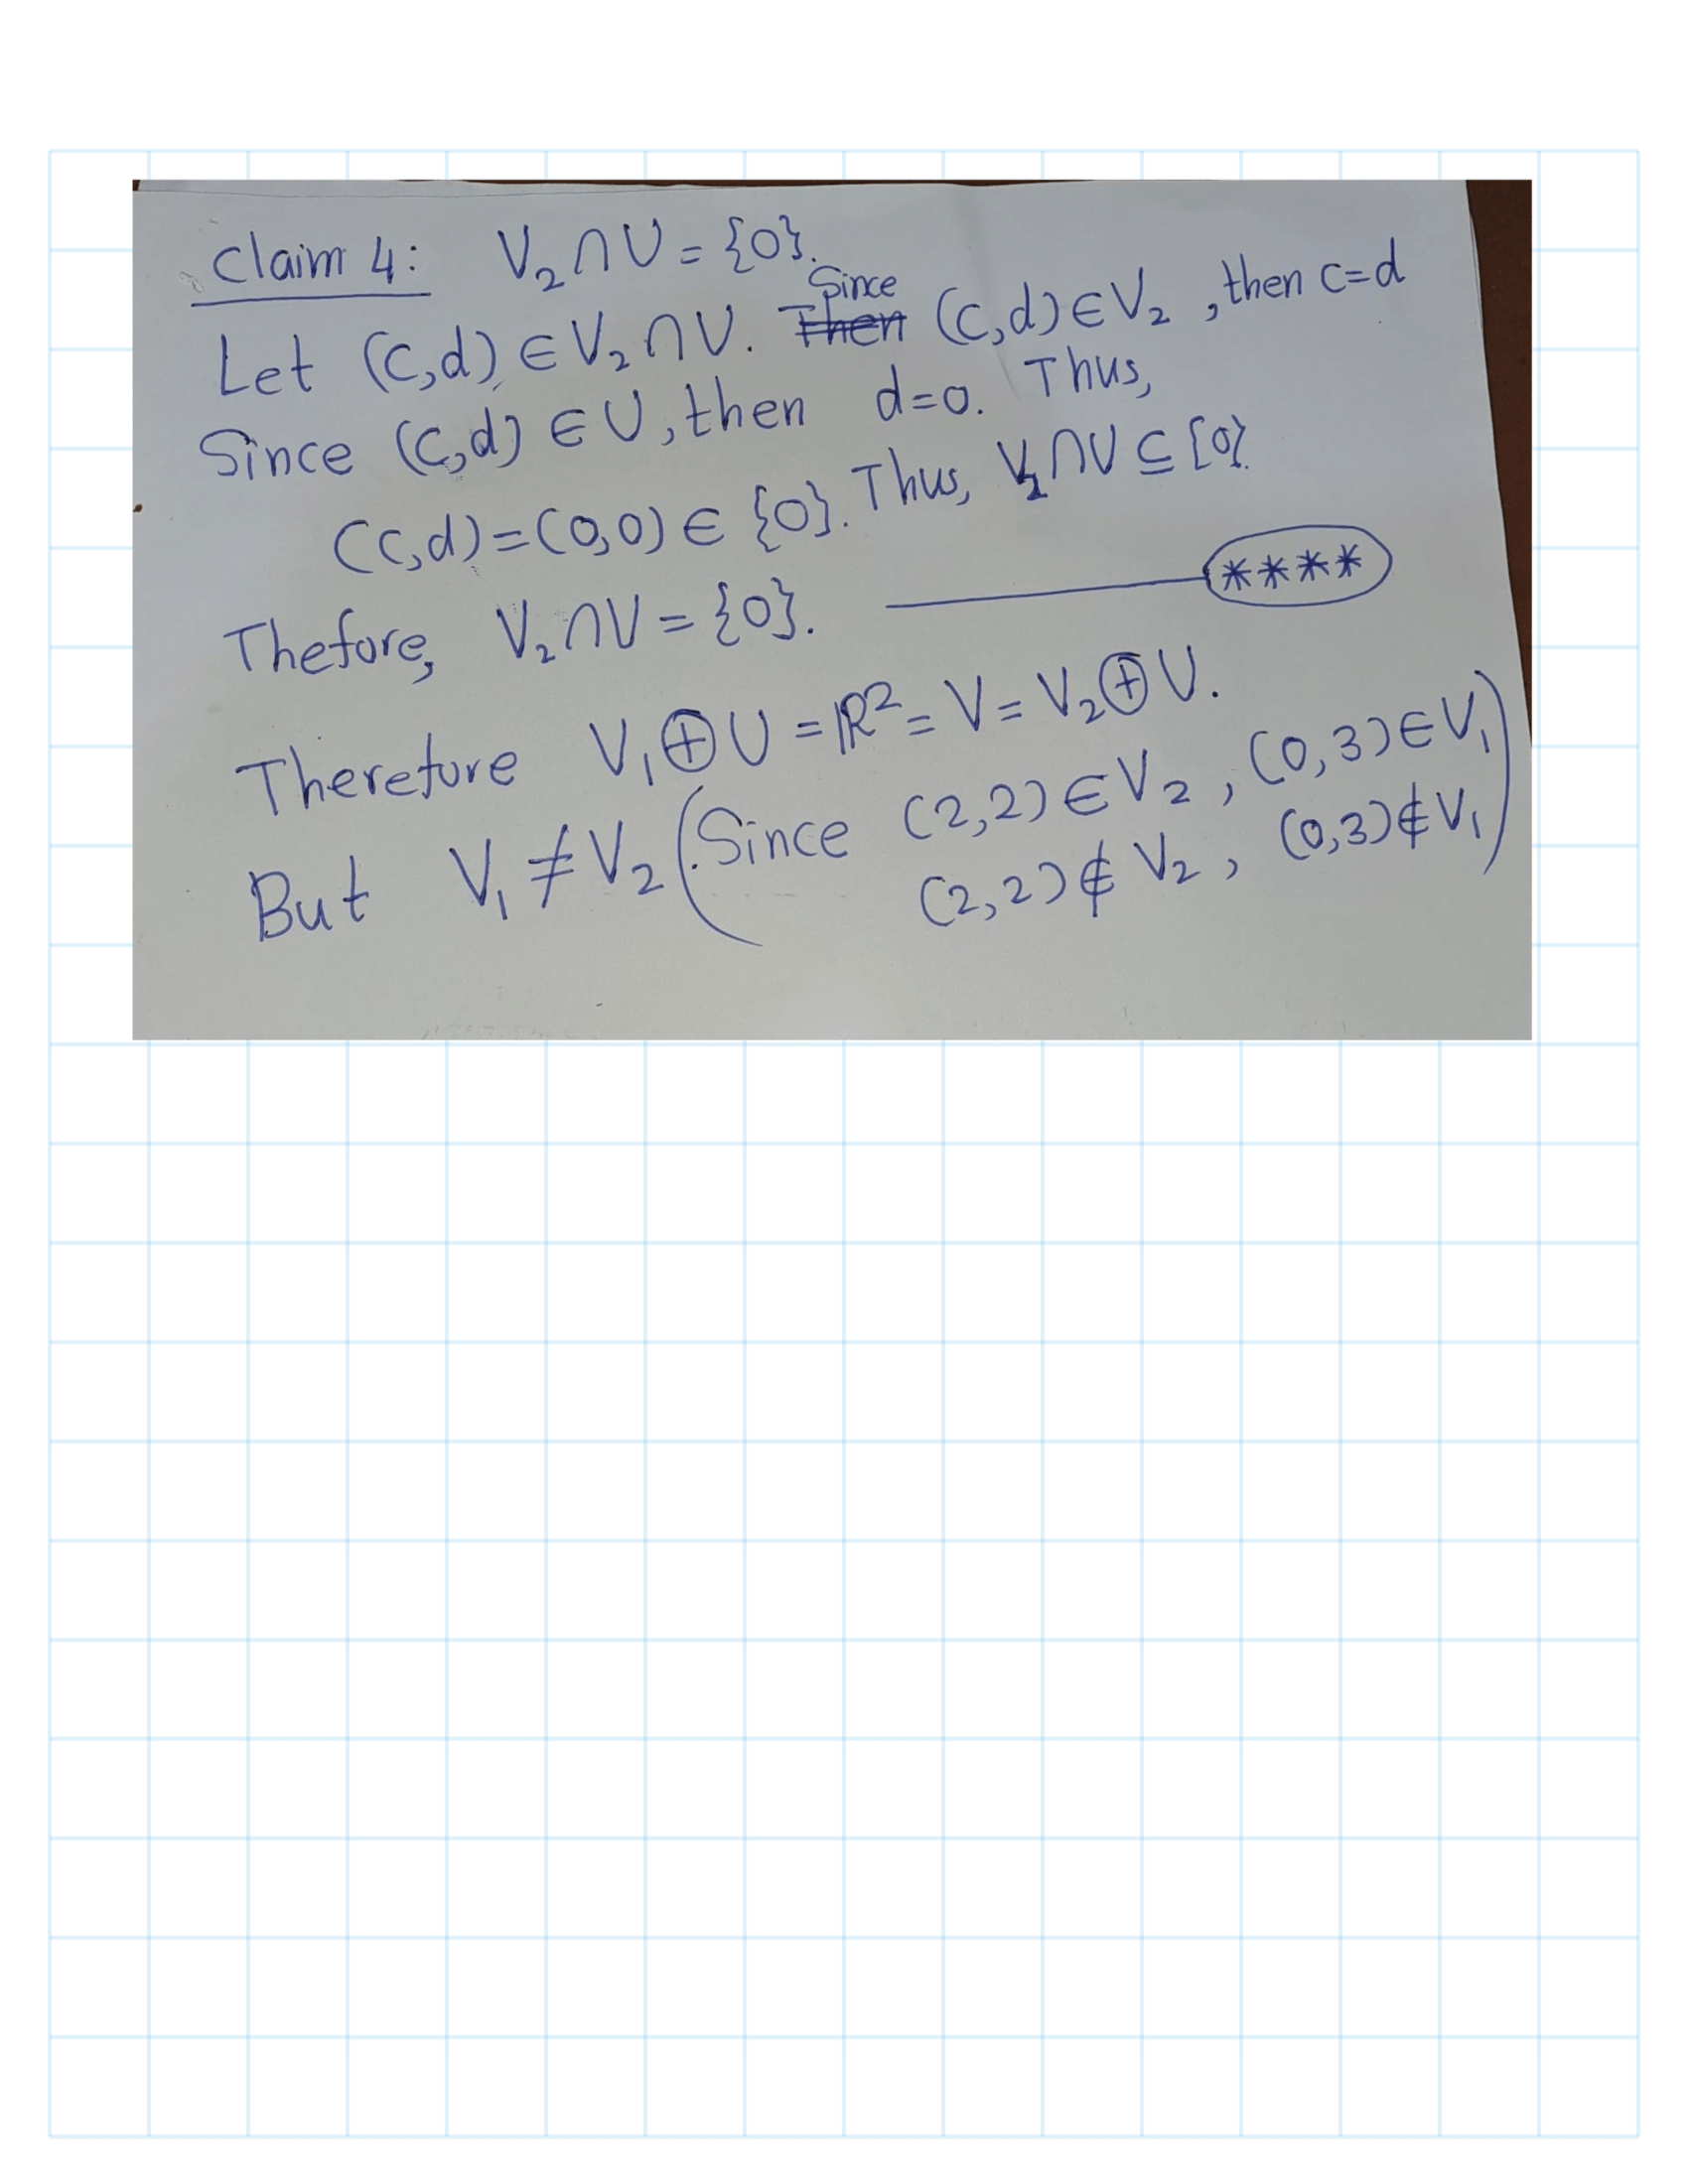 Claim 4: V₂∩U = {0}.
Let (c,d) ∈ V₂∩U. ~~Then~~ Since (c,d) ∈ V₂, then c=d
Since (c,d) ∈ U, then d=0. Thus,
(c,d)=(0,0) ∈ {0}. Thus, V₂∩U ⊆ {0}
Thefore, V₂∩U = {0}. ——— ****
Therefore V₁⊕U = ℝ² = V = V₂⊕U.
But V₁ ≠ V₂ (Since (2,2) ∈ V₂, (0,3) ∈ V₁
(2,2) ∉ V₂, (0,3) ∉ V₁)